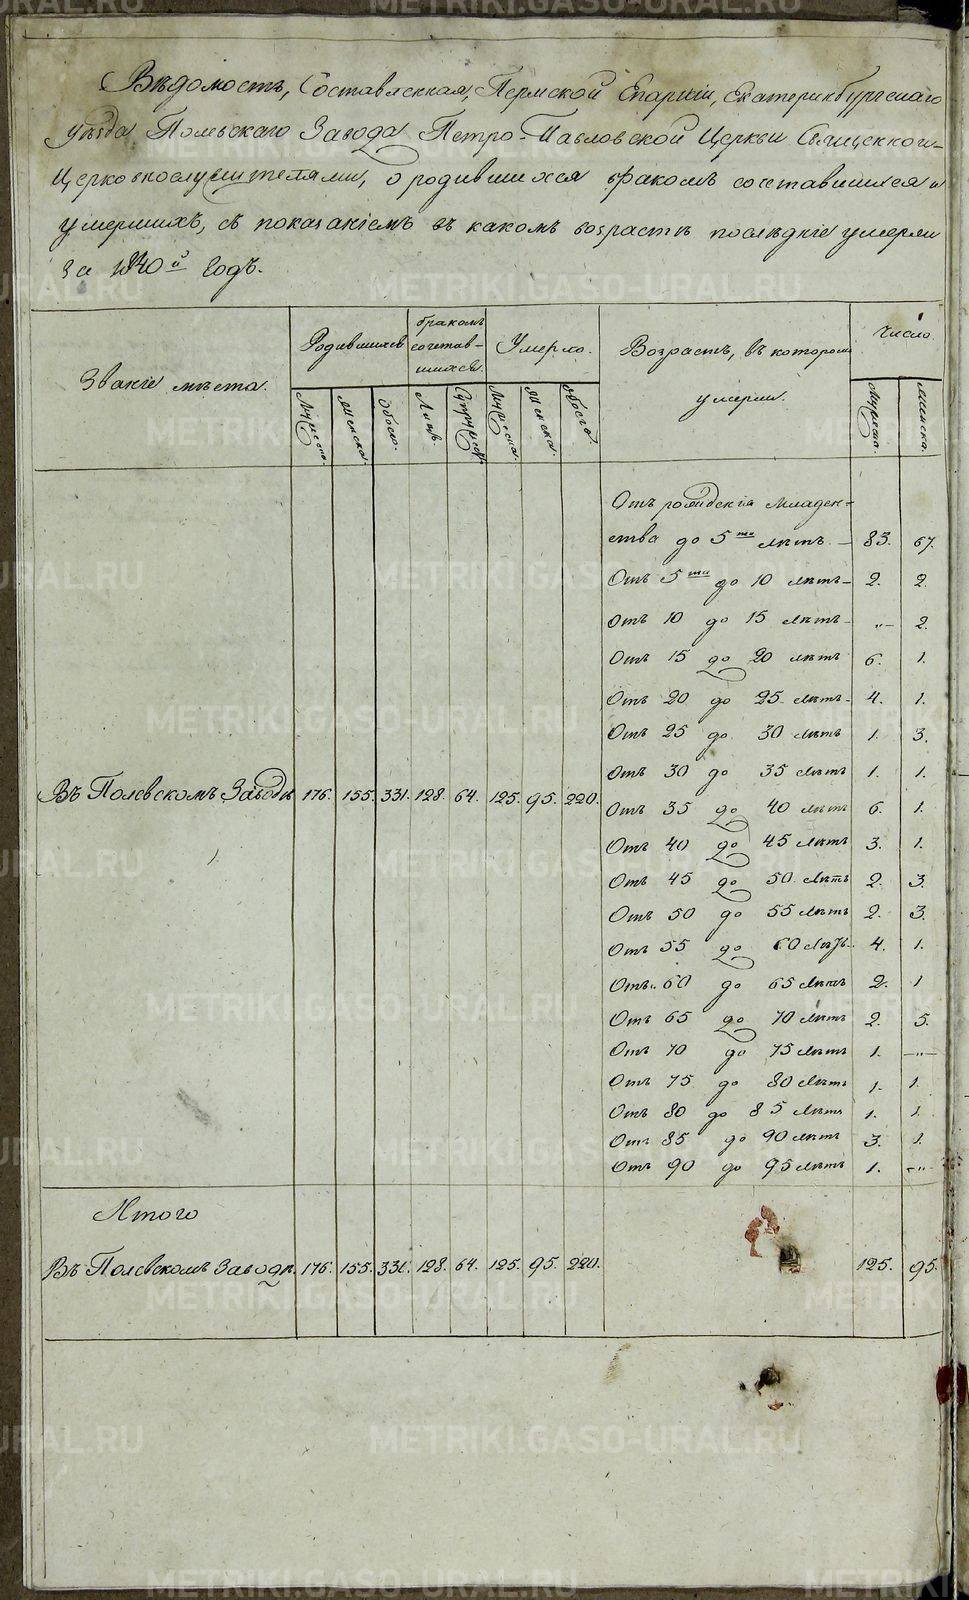 Вѣдомость, Составленная, Пермской Епархіи, Екатеринбургскаго
уѣзда Полевскаго Завода Петро-Павловской Церкви Священно и
Церковнослужителями, о родившихся бракомъ сочетавшихся и
умершихъ, съ показаніемъ въ какомъ возрастѣ послѣдніе умерли
За 1840й Годъ.
Званіе мѣста.
Родившихся
бракомъ сочетавшихся
Умерло.
Возрастъ, въ которомъ умерли.
Число
Мужеска.
женска.
Обоего.
Лицъ.
Супружествъ.
Мужеска.
женска.
обоего.
Мужеска.
женска.
Отъ рожденія младен-
ства до 5ти лѣтъ - 83. 67.
Отъ 5ти до 10 лѣтъ - 2. 2.
Отъ 10 до 15 лѣтъ - „ - 2.
Отъ 15 до 20 лѣтъ 6. 1.
Отъ 20 до 25 лѣтъ - 4. 1.
Отъ 25 до 30 лѣтъ 1. 3.
Отъ 30 до 35 лѣтъ 1. 1.
Въ Полевскомъ Заводѣ 176. 155. 331. 128. 64. 125. 95. 220.
Отъ 35 до 40 лѣтъ 6. 1.
Отъ 40 до 45 лѣтъ 3. 1.
Отъ 45 до 50 лѣтъ 2. 3.
Отъ 50 до 55 лѣтъ 2. 3.
Отъ 55 до 60 лѣтъ - 4. 1.
Отъ 60 до 65 лѣтъ 2. 1
Отъ 65 до 70 лѣтъ 2. 5.
Отъ 70 до 75 лѣтъ 1. - „ -
Отъ 75 до 80 лѣтъ 1. 1.
Отъ 80 до 85 лѣтъ 1. 1.
Отъ 85 до 90 лѣтъ 3. 1.
Отъ 90 до 95 лѣтъ 1. - „ -
Итого
Въ Полевскомъ Заводѣ. 176. 155. 331. 128. 64. 125. 95. 220. 125. 95.
METRIKI.GASO-URAL.RU